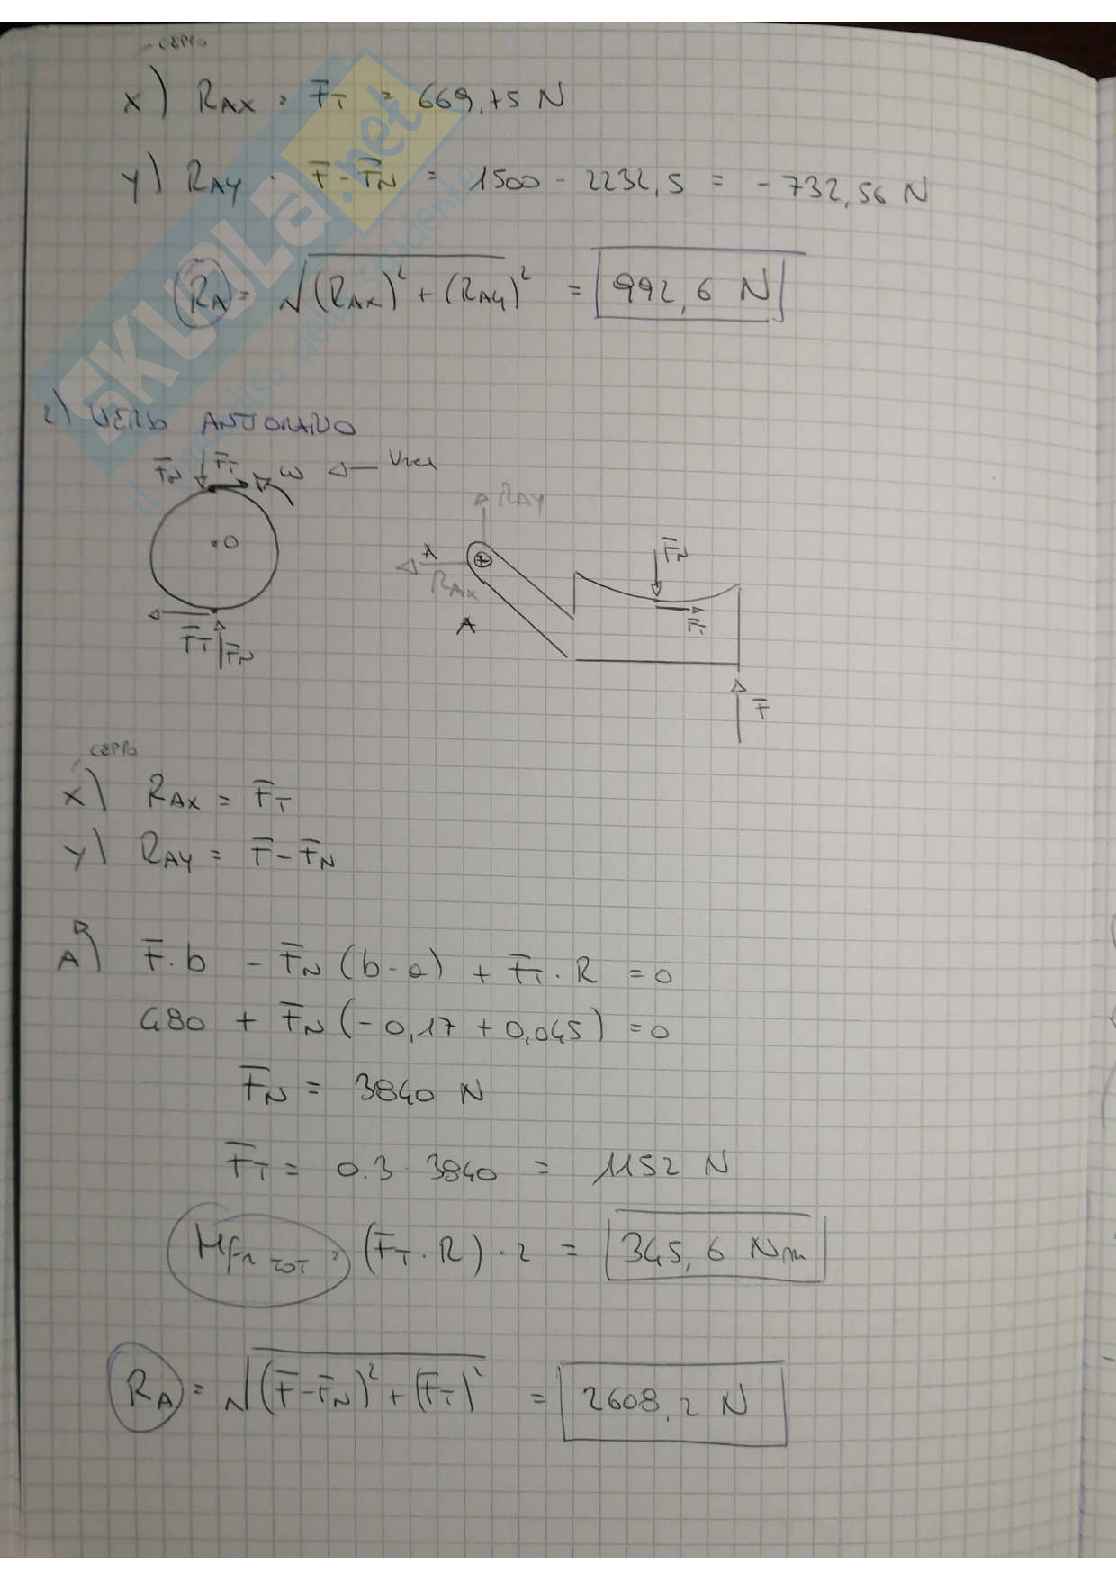 CEPPO
x) RAX = FT = 669,75 N
y) RAY = F - FN = 1500 - 2232,5 = - 732,56 N
RA = √(RAX)² + (RAY)² = 992,6 N
SKUOLA.net
2) VERSO ANTIORARIO
FN FT ω Vrel
O
FT FN
RAY
A
RAX
A
FN
FT
F
CEPPO
x) RAX = FT
y) RAY = F - FN
A) F·b - FN (b-a) + FT·R = 0
480 + FN (-0,17 + 0,045) = 0
FN = 3840 N
FT = 0.3 3840 = 1152 N
MFR TOT = (FT·R)·2 = 345,6 Nm
RA = √(F-FN)² + (FT)² = 2608,2 N